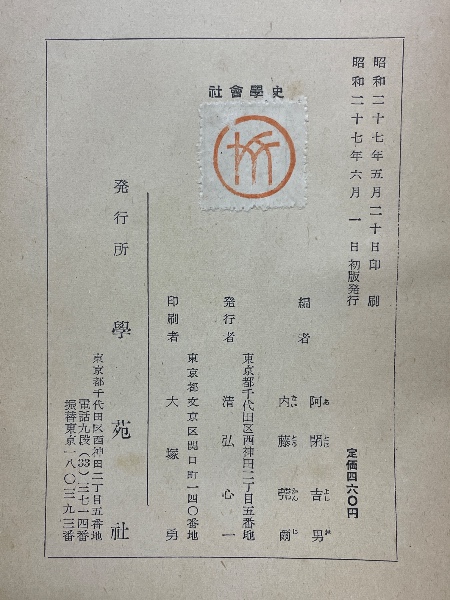 社會學史
昭和二十七年五月二十日印刷
昭和二十七年六月一日初版発行
定価四六〇円
編者
阿閉吉男
内藤莞爾
東京都千代田区西神田二丁目五番地
発行者 清弘心一
東京都文京区関口町一四〇番地
印刷者 大塚勇
発行所 學苑社
東京都千代田区西神田二丁目五番地
電話九段(33)三七一四番
振替東京一八〇三九三番